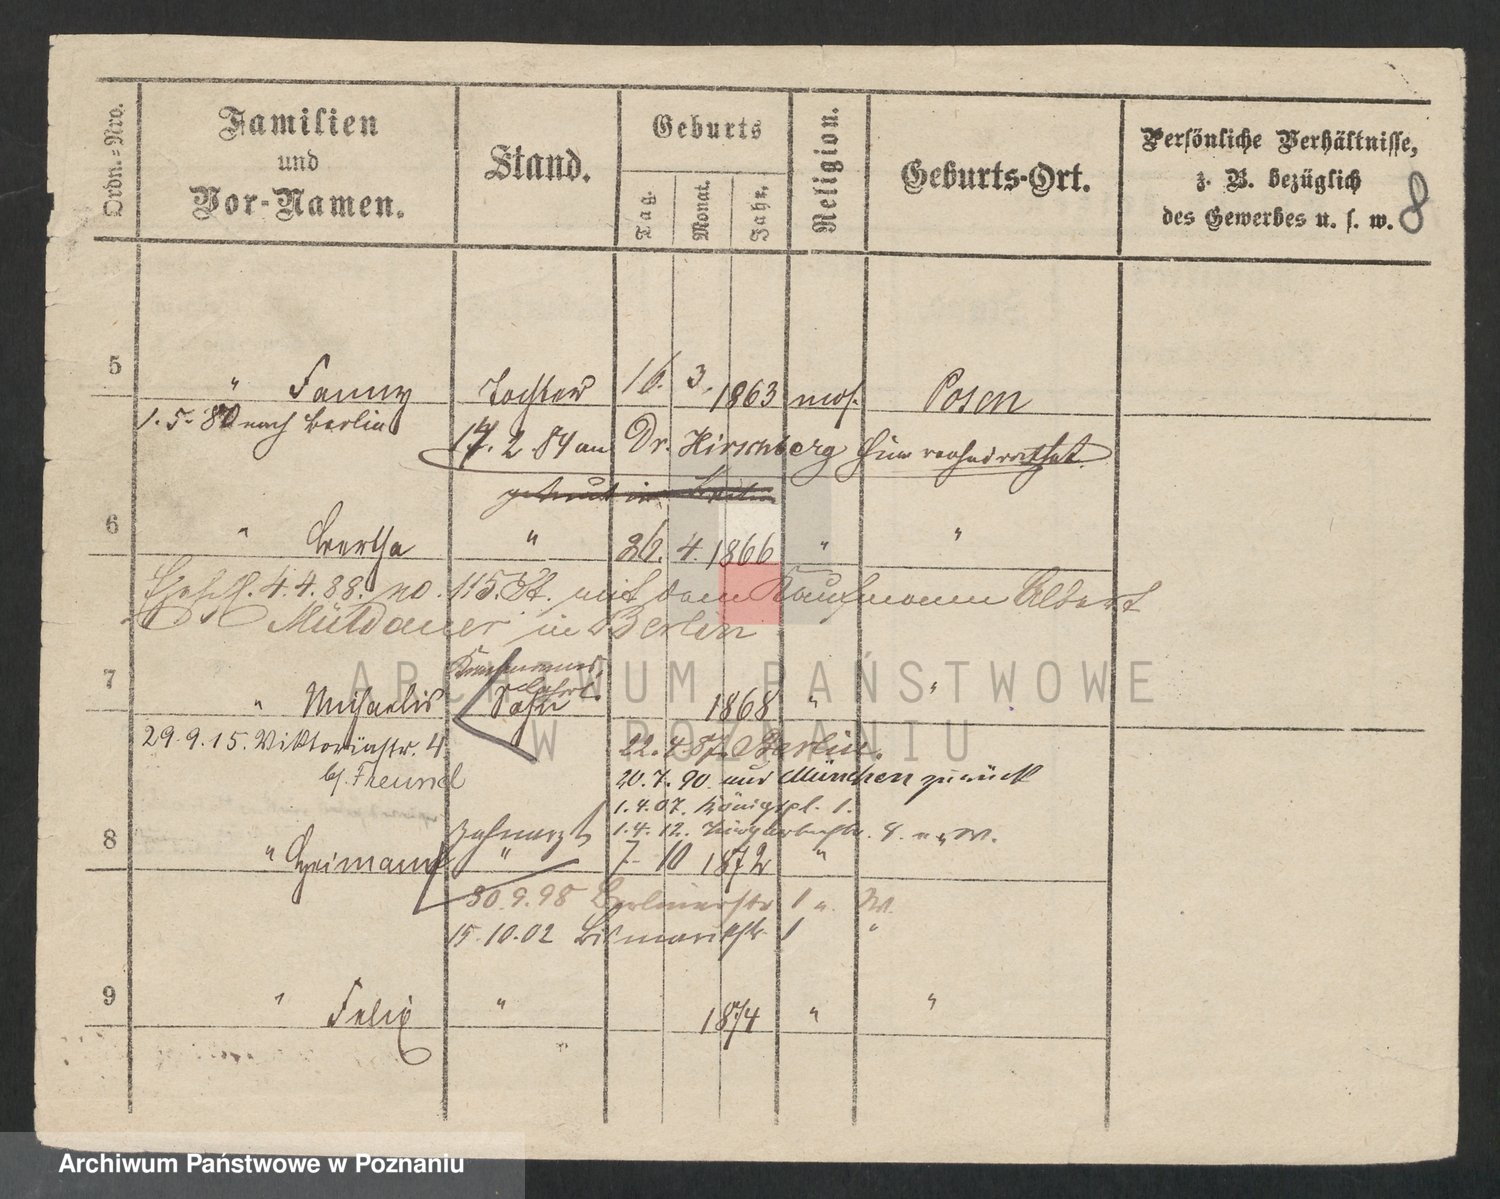 Ordn.-Nro.
Familien
und
Vor-Namen.
Stand.
Geburts
Tag.
Monat.
Jahr.
Religion.
Geburts-Ort.
Persönliche Verhältnisse,
z. B. bezüglich
des Gewerbes u. s. w.
8
5 " Fanny Tochter 16. 3. 1863 mos. Posen
1. 5. 80 nach Berlin
17. 2 84 an Dr. Hirschberg hier verheirathet.
6 " Bertha " 26. 4. 1866 " "
4. 4. 88. no. 115. St. mit dem Kaufmann Albert
in Berlin
7 " Michaelis Sohn 1868 " "
29. 9. 15. Viktoriastr. 4
b/. Freund
22. 4 87. Berlin.
20. 7. 90. aus München zurück
1. 4. 07. Königspl. 1.
1. 4. 12. 8. u. W.
8 " Heimann Zahnarzt " 7. 10 1872 "
30. 9. 98 Berlinerstr 1 u. W.
15. 10. 02 Bismarckstr. 1 "
9 " Felix " 1874 " "
ARCHIWUM PAŃSTWOWE
W POZNANIU
Archiwum Państwowe w Poznaniu